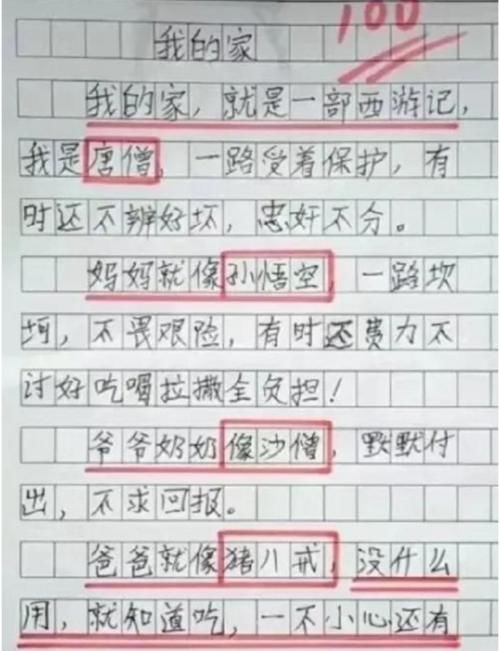 100
我的家
我的家，就是一部西游记，
我是唐僧，一路受着保护，有
时还不辨好坏，忠奸不分。
妈妈就像孙悟空，一路坎
坷，不畏艰险，有时还费力不
讨好吃喝拉撒全负担！
爷爷奶奶像沙僧，默默付
出，不求回报。
爸爸就像猪八戒，没什么
用，就知道吃，一不小心还有